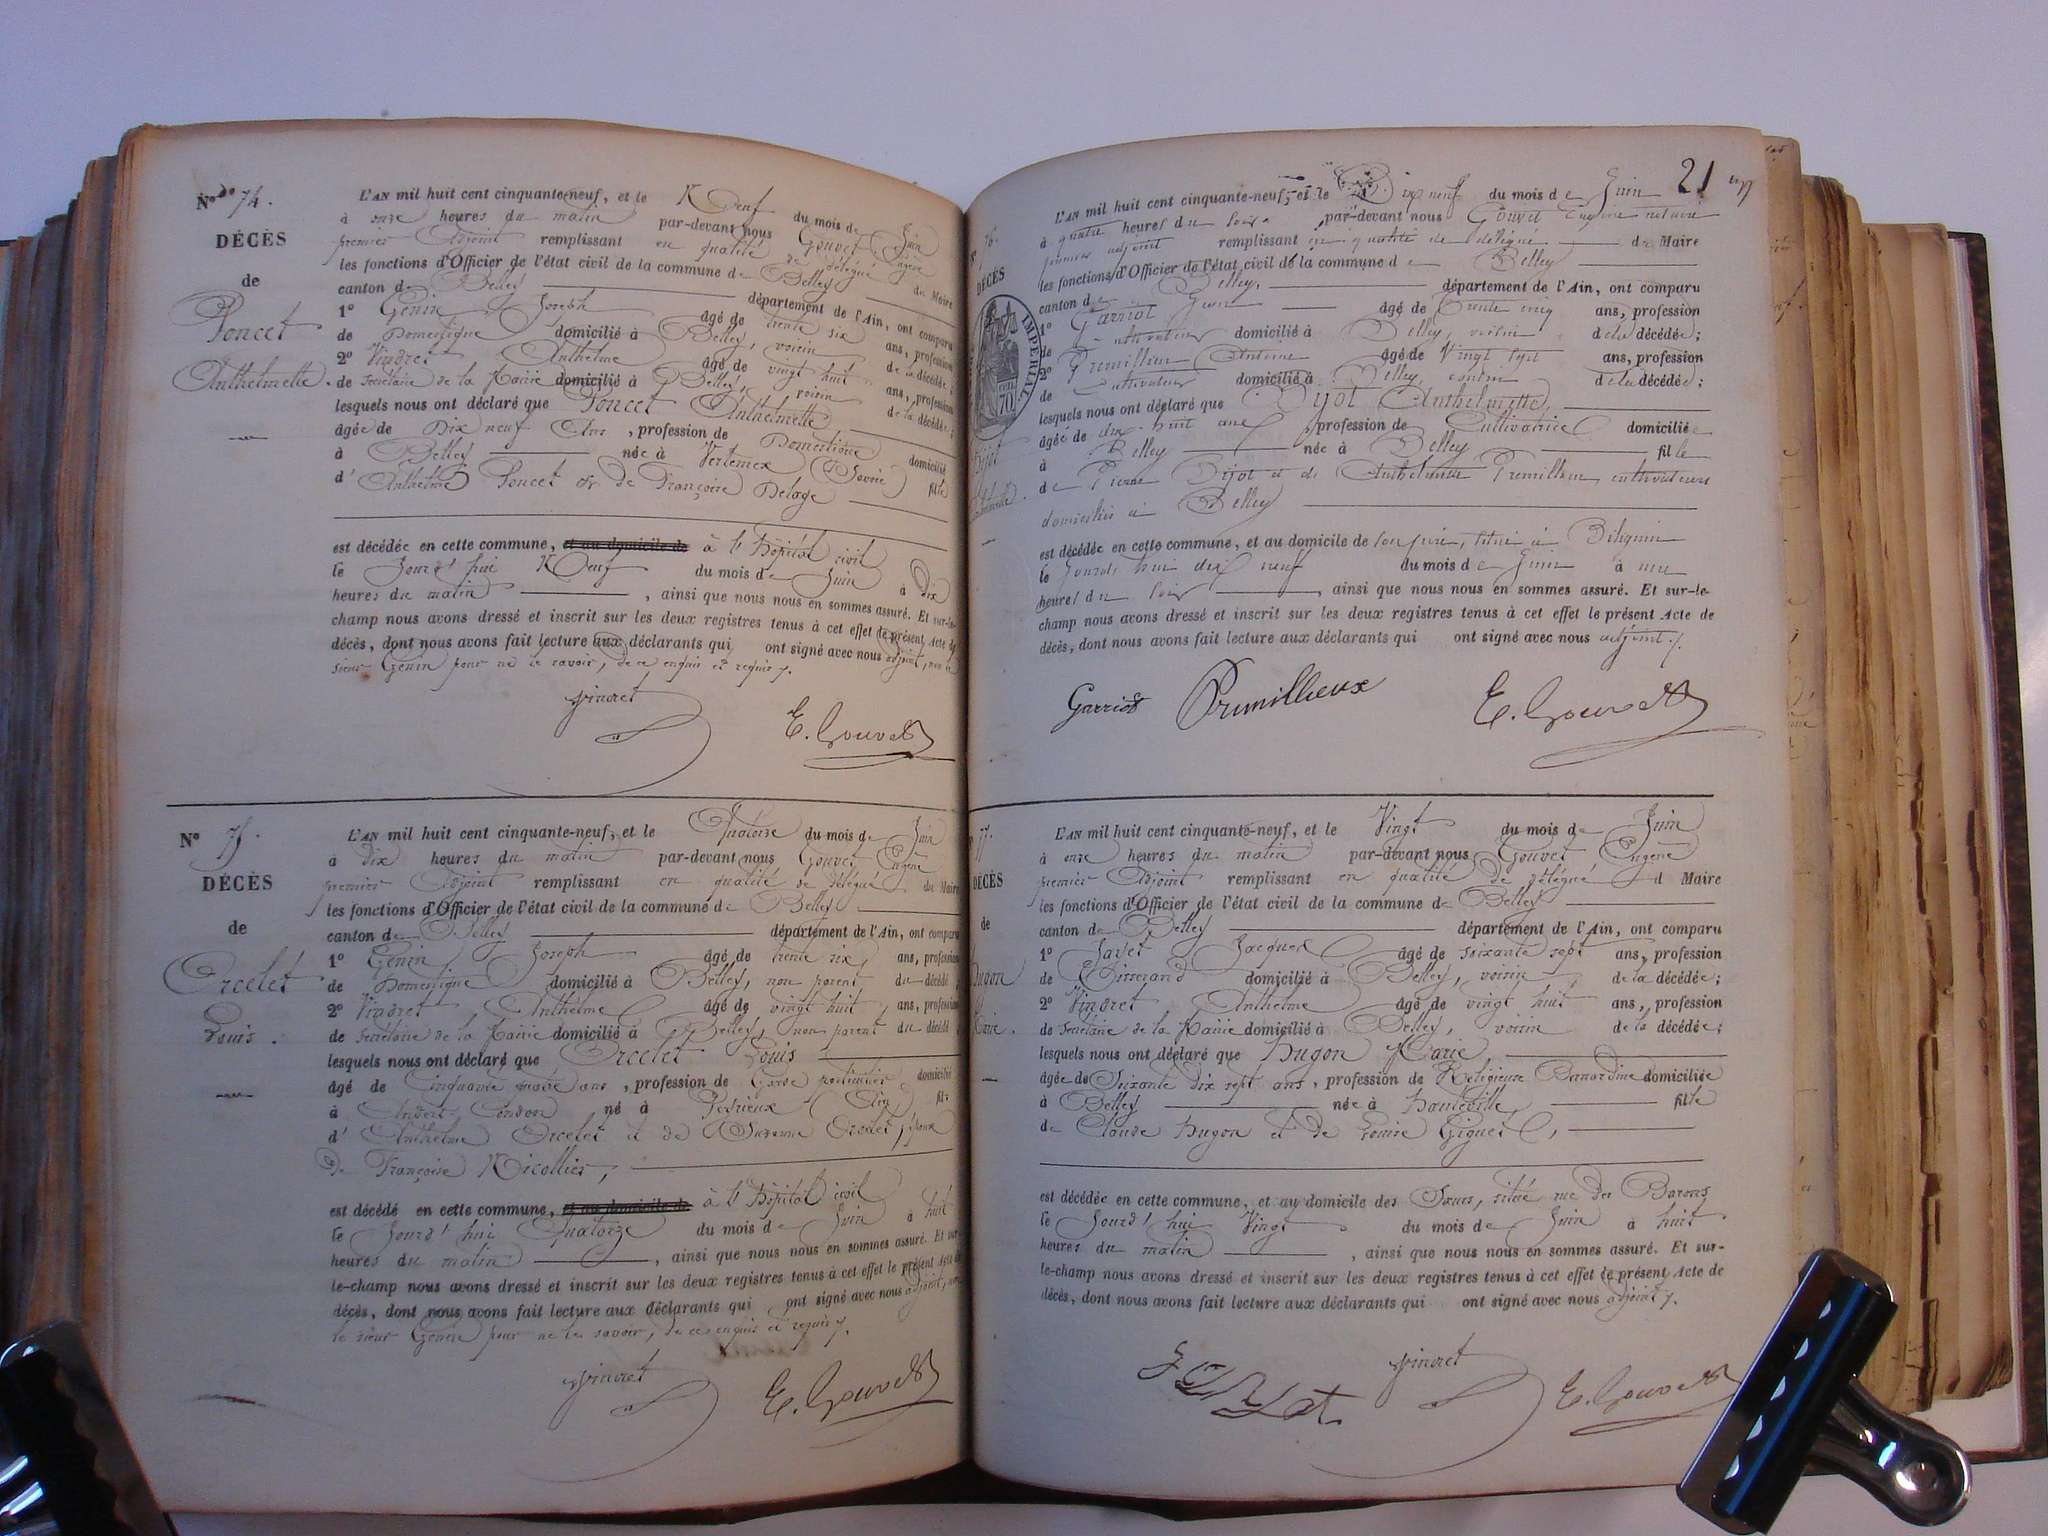 N° 74.
DÉCÈS
de
Poncet
Anthelmette.
L'AN mil huit cent cinquante-neuf, et le Neuf du mois de Juin
à onze heures du matin par-devant nous Gouvet Eugène
premier Adjoint remplissant en qualité de délégué du Maire
les fonctions d'Officier de l'état civil de la commune de Belley
canton de Belley département de l'Ain, ont comparu
1° Génin Joseph âgé de trente six ans, profession
de Domestique domicilié à Belley, voisin de la décédée;
2° Vindret Anthelme âgé de vingt huit ans, profession
de Secrétaire de la Mairie domicilié à Belley, voisin de la décédée;
lesquels nous ont déclaré que Poncet Anthelmette
âgée de Dix neuf Ans, profession de Domestique domicilié
à Belley née à Vertemex (Savoie) fille
d'Anthelme Poncet & de Françoise Delage
est décédée en cette commune, et au domicile de à l'Hôpital civil
le Jourd'hui Neuf du mois de Juin à Dix
heures du matin, ainsi que nous nous en sommes assuré. Et sur-le-
champ nous avons dressé et inscrit sur les deux registres tenus à cet effet le présent Acte de
décès, dont nous avons fait lecture aux déclarants qui ont signé avec nous adjoint, non le
sieur Génin pour ne le savoir, de ce enquis et requis.
Vindret
E. Gouvet
N° 75.
DÉCÈS
de
Orcelet
Louis.
L'AN mil huit cent cinquante-neuf, et le Quatorze du mois de Juin
à dix heures du matin par-devant nous Gouvet Eugène
premier Adjoint remplissant en qualité de délégué du Maire
les fonctions d'Officier de l'état civil de la commune de Belley
canton de Belley département de l'Ain, ont comparu
1° Génin Joseph âgé de trente six, ans, profession
de Domestique domicilié à Belley, non parent, du décédé;
2° Vindret Anthelme âgé de vingt huit, ans, profession
de Secrétaire de la Mairie domicilié à Belley, non parent du décédé
lesquels nous ont déclaré que Orcelet Louis
âgé de Cinquante quatre ans, profession de Garde particulier domicilié
à Andert-Condon né à (Ain) fils
d'Anthelme Orcelet et de Suzanne
de Françoise Nicollier,
est décédé en cette commune, et au domicile de à l'Hôpital civil
le Jourd'hui Quatorze du mois de Juin à huit
heures du matin, ainsi que nous nous en sommes assuré. Et sur-
le-champ nous avons dressé et inscrit sur les deux registres tenus à cet effet le présent Acte de
décès, dont nous avons fait lecture aux déclarants qui ont signé avec nous adjoint, non
le sieur Génin pour ne le savoir, de ce enquis et requis.
Vindret
E. Gouvet
21
76.
DÉCÈS
IMPÉRIAL
70
Bijot
L'AN mil huit cent cinquante-neuf, et le Dix neuf du mois de Juin
à quatre heures du soir par-devant nous Gouvet Eugène notaire
premier adjoint remplissant en qualité de délégué du Maire
les fonctions d'Officier de l'état civil de la commune de Belley
canton de Belley, département de l'Ain, ont comparu
1° Garriot Jean âgé de Trente cinq ans, profession
de Cultivateur domicilié à Belley, voisin de la décédée;
2° Premillieu Antoine âgé de Vingt sept ans, profession
de Cultivateur domicilié à Belley, cousin de la décédée;
lesquels nous ont déclaré que Bijot Anthelmette,
âgée de dix-huit ans profession de Cultivatrice domiciliée
à Belley née à Belley fille
de Pierre Bijot et de Anthelmette Premillieu cultivateurs
domiciliés à Belley
est décédée en cette commune, et au domicile de son père, situé à Billignin
le Jourd'hui dix neuf du mois de Juin à une
heures du soir, ainsi que nous nous en sommes assuré. Et sur-le-
champ nous avons dressé et inscrit sur les deux registres tenus à cet effet le présent Acte de
décès, dont nous avons fait lecture aux déclarants qui ont signé avec nous adjoint.
Garriot Prumillieux E. Gouvet
77.
DÉCÈS
de
Hugon
Marie.
L'AN mil huit cent cinquante-neuf, et le Vingt du mois de Juin
à onze heures du matin par-devant nous Gouvet Eugène
premier Adjoint remplissant en qualité de délégué d Maire
les fonctions d'Officier de l'état civil de la commune de Belley
canton de Belley département de l'Ain, ont comparu
1° Javet Jacques âgé de soixante sept ans, profession
de Tisserand domicilié à Belley, voisin de la décédée;
2° Vindret Anthelme âgé de vingt huit ans, profession
de Secrétaire de la Mairie domicilié à Belley, voisin de la décédée;
lesquels nous ont déclaré que Hugon Marie
âgée de Soixante dix sept ans, profession de Religieuse Bernardine domiciliée
à Belley née à Hauteville, fille
de Claude Hugon et de Louise
est décédée en cette commune, et au domicile des Sœurs, situé rue des Barons
le Jourd'hui Vingt du mois de Juin à huit
heures du matin, ainsi que nous nous en sommes assuré. Et sur-
le-champ nous avons dressé et inscrit sur les deux registres tenus à cet effet le présent Acte de
décès, dont nous avons fait lecture aux déclarants qui ont signé avec nous adjoint.
Vindret E. Gouvet